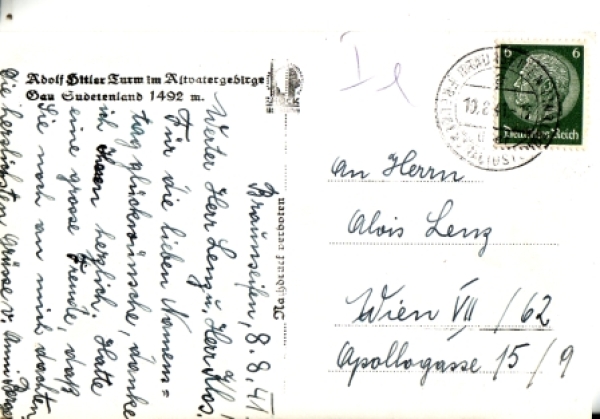 Adolf Hitler Turm im Altvatergebirge
Gau Sudetenland 1492 m.
Nachdruck verboten
Braunseifen, 8.8.41
Werter Herr Lenz u. Herr
Für die lieben Namens=
tagglückwünsche, danke
ich Ihnen herzlich. Hatte
eine grosse Freude, daß
Sie noch an mich dachten.
Die herzlichsten Grüsse v.
6 6
Deutsches Reich
An Herrn
Alois Lenz
Wien VII /62
Apollogasse 15 / 9